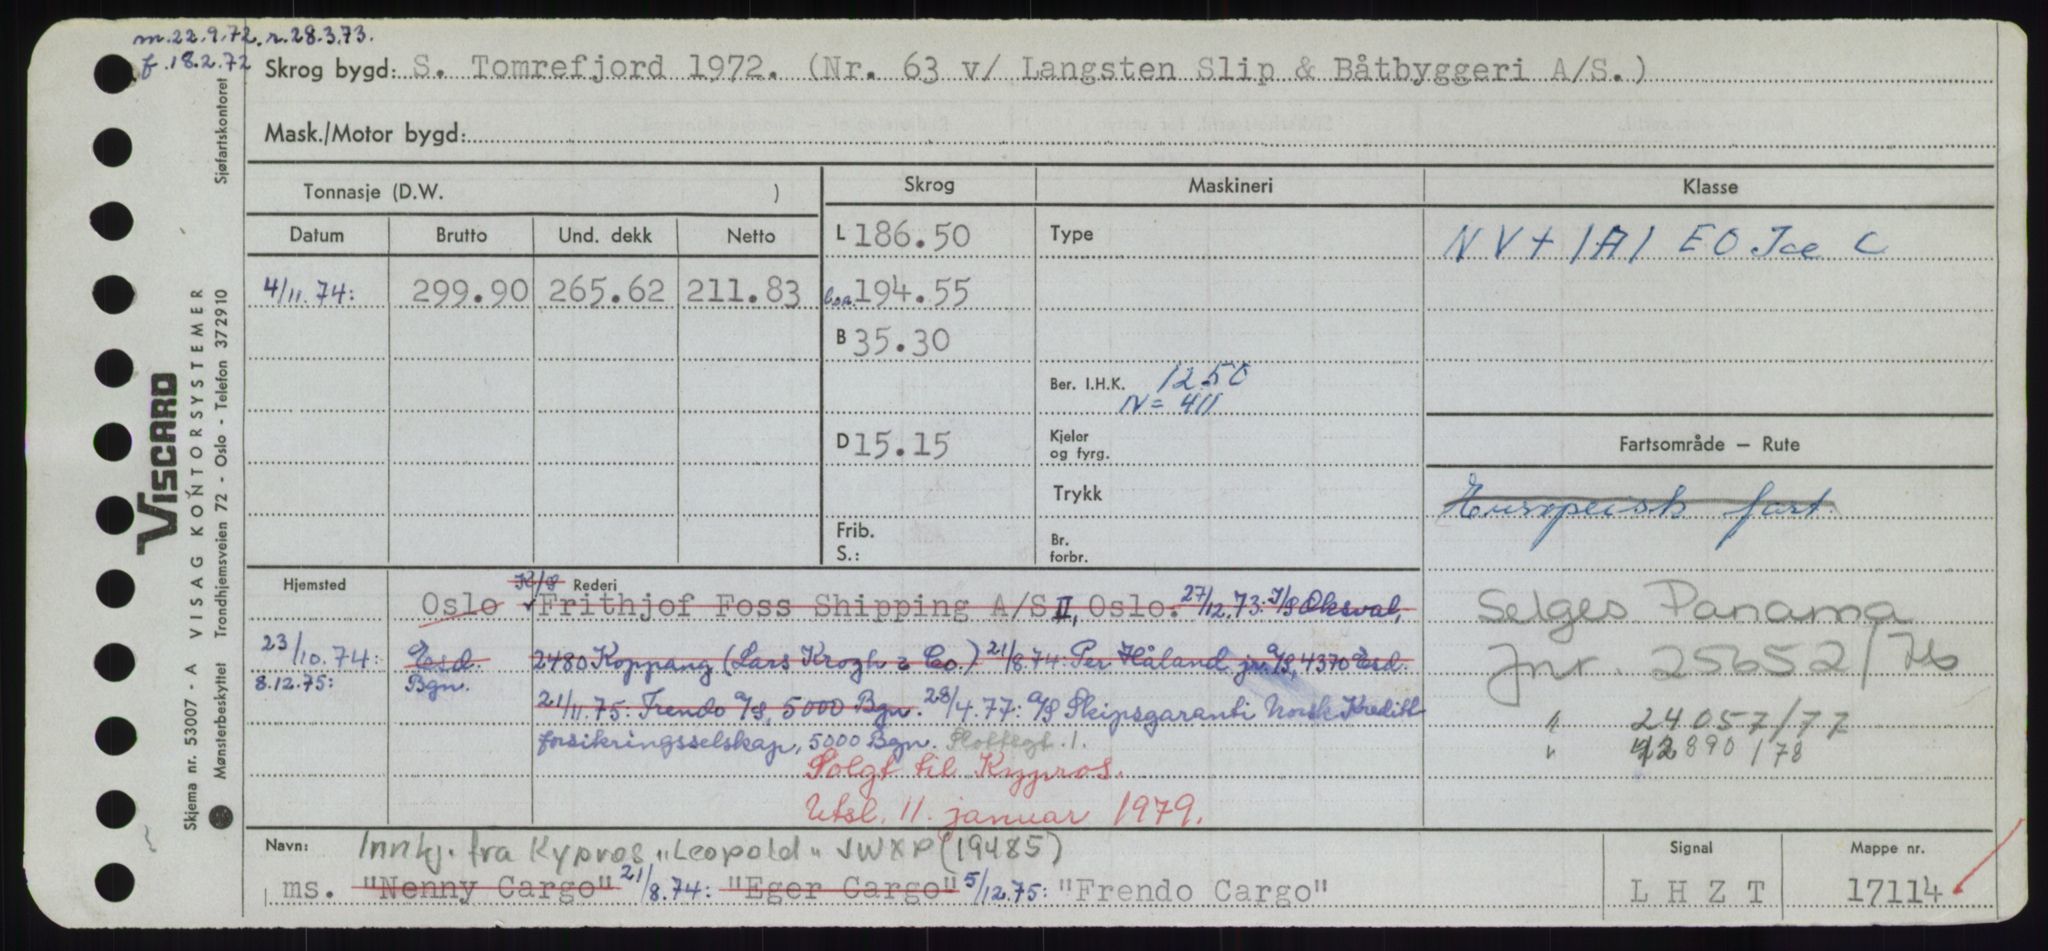 m.22.9.72. r.28.3.73.
f.18.2.72
Skrog bygd: S. Tomrefjord 1972. (Nr. 63 v/ Langsten Slip & Båtbyggeri A/S.)
Mask./Motor bygd:
Tonnasje (D.W. )
Skrog
Maskineri
Klasse
Datum Brutto Und. dekk Netto
L 186.50
Type
NV+ 1A1 EO Ice C
4/11.74: 299.90 265.62 211.83
loa. 194.55
B 35.30
Ber. I.H.K. 1250
N= 411
D 15.15
Kjeler
og fyrg.
Fartsområde – Rute
Trykk
Europeisk fart
Frib.
S.:
Br.
forbr.
Hjemsted K/S Rederi
Oslo Frithjof Foss Shipping A/S II, Oslo. 27/12.73: I/S Oksval,
Selges Panama
23/10.74: Esd. 2480 Koppang (Lars Krogh & Co.) 21/8.74: Per Håland jr. A/S, 4370 Esd.
Jnr. 25652/76
8.12.75: Bgn.
21/11.75: Frendo A/S, 5000 Bgn. 28/4.77: A/S Skipsgaranti Norsk Kreditt
" 24057/77
forsikringsselskap, 5000 Bgn.
" 42890/78
Solgt til Kypros.
Utsl. 11. januar 1979.
Navn: Innkj. fra Kypros "Leopold" JWXP (19485)
Signal
Mappe nr.
ms. "Nenny Cargo" 21/8.74: "Eger Cargo" 5/12.75: "Frendo Cargo"
L H Z T
17114
Sjøfartskontoret
Viscard
Skjema nr. 53007 - A VISAG KONTORSYSTEMER
Mønsterbeskyttet Trondhjemsveien 72 - Oslo - Telefon 372910